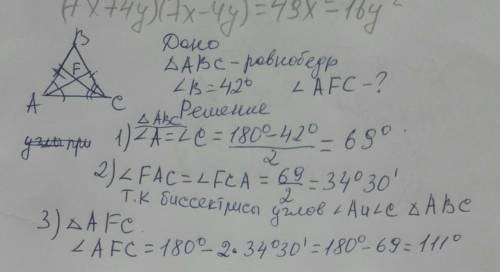 (7x+4y)(7x-4y)=49x=16y²
B
F
A
C
Дано
△ABC-равнобедр
∠B=42° ∠AFC-?
Решение
△ABC
1) ∠A=∠C= 180°-42°/2 = 69°
углы при
2) ∠FAC=∠FCA= 69/2 =34°30'
т.к биссектрисы углов ∠Aи∠C △ABC
3) △AFC
∠AFC=180°-2·34°30'=180°-69=111°